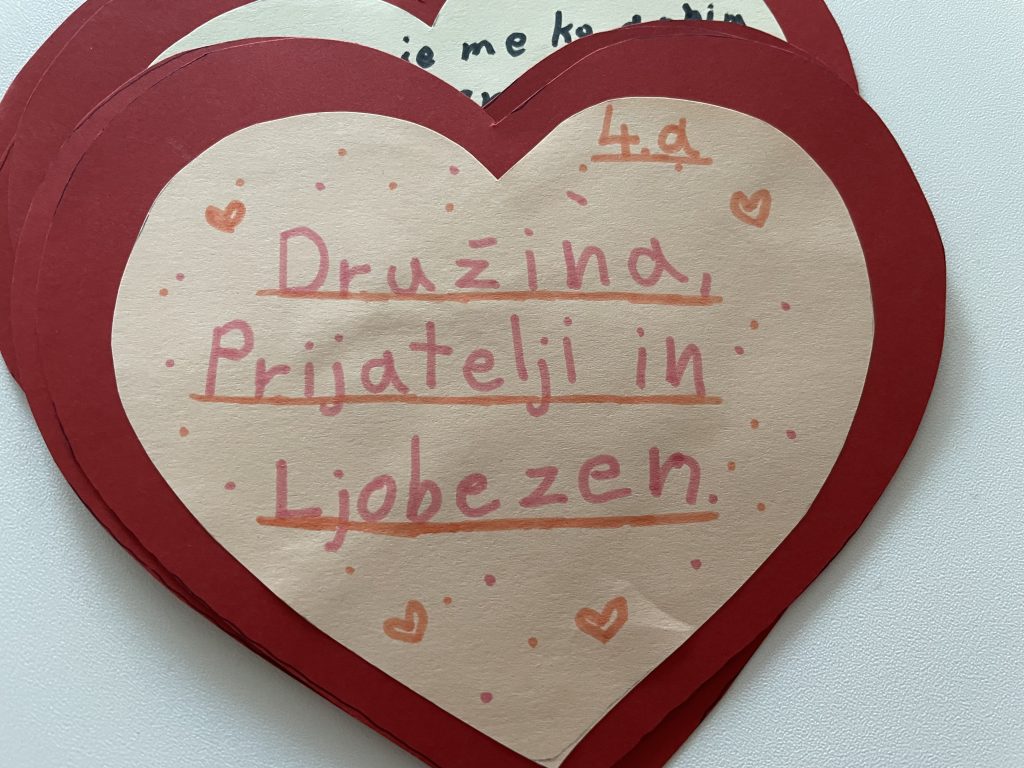 je me ko dobim
4.a
Družina,
Prijatelji in
Ljobezen.